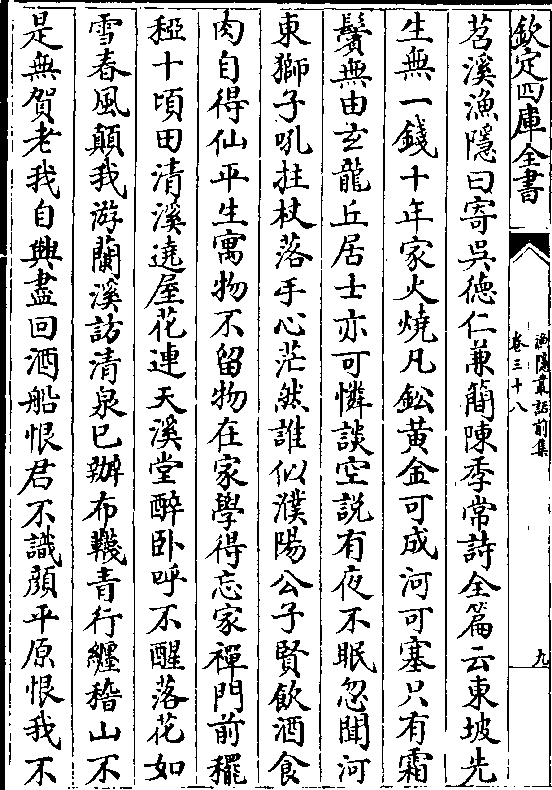 欽定四庫全書
漁隱叢話前集
卷三十八
九
苕溪漁隱曰寄吳德仁兼簡陳季常詩全篇云東坡先
生無一錢十年家火燒凡鉛黃金可成河可塞只有霜
鬢無由玄龍丘居士亦可憐談空說有夜不眠忽聞河
東獅子吼拄杖落手心茫然誰似濮陽公子賢飲酒食
肉自得仙平生寓物不留物在家學得忘家禪門前䆉
稏十頃田清溪遶屋花連天溪堂醉卧呼不醒落花如
雪春風顛我游蘭溪訪清泉已辦布韈青行纏稽山不
是無賀老我自興盡回酒船恨君不識顏平原恨我不